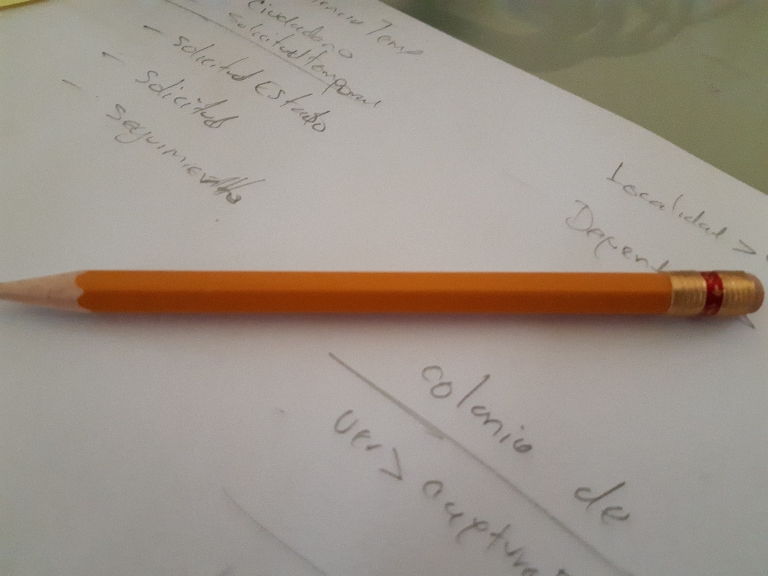 Temp
ciudadano
solicitud temporal
- solicitud Estado
- solicitud
- seguimiento
Localidad >
Depend
colonia de
ver > captura